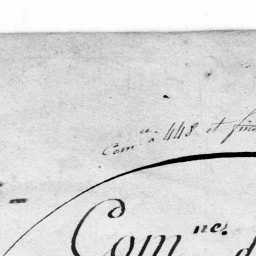 Com.ce à 448 et fin
Com.nes d